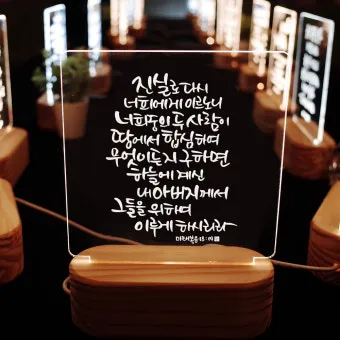 진실로 다시
너희에게 이르노니
너희 중의 두 사람이
땅에서 합심하여
무엇이든지 구하면
하늘에 계신
내 아버지께서
그들을 위하여
이루게 하시리라
마태복음 18:19